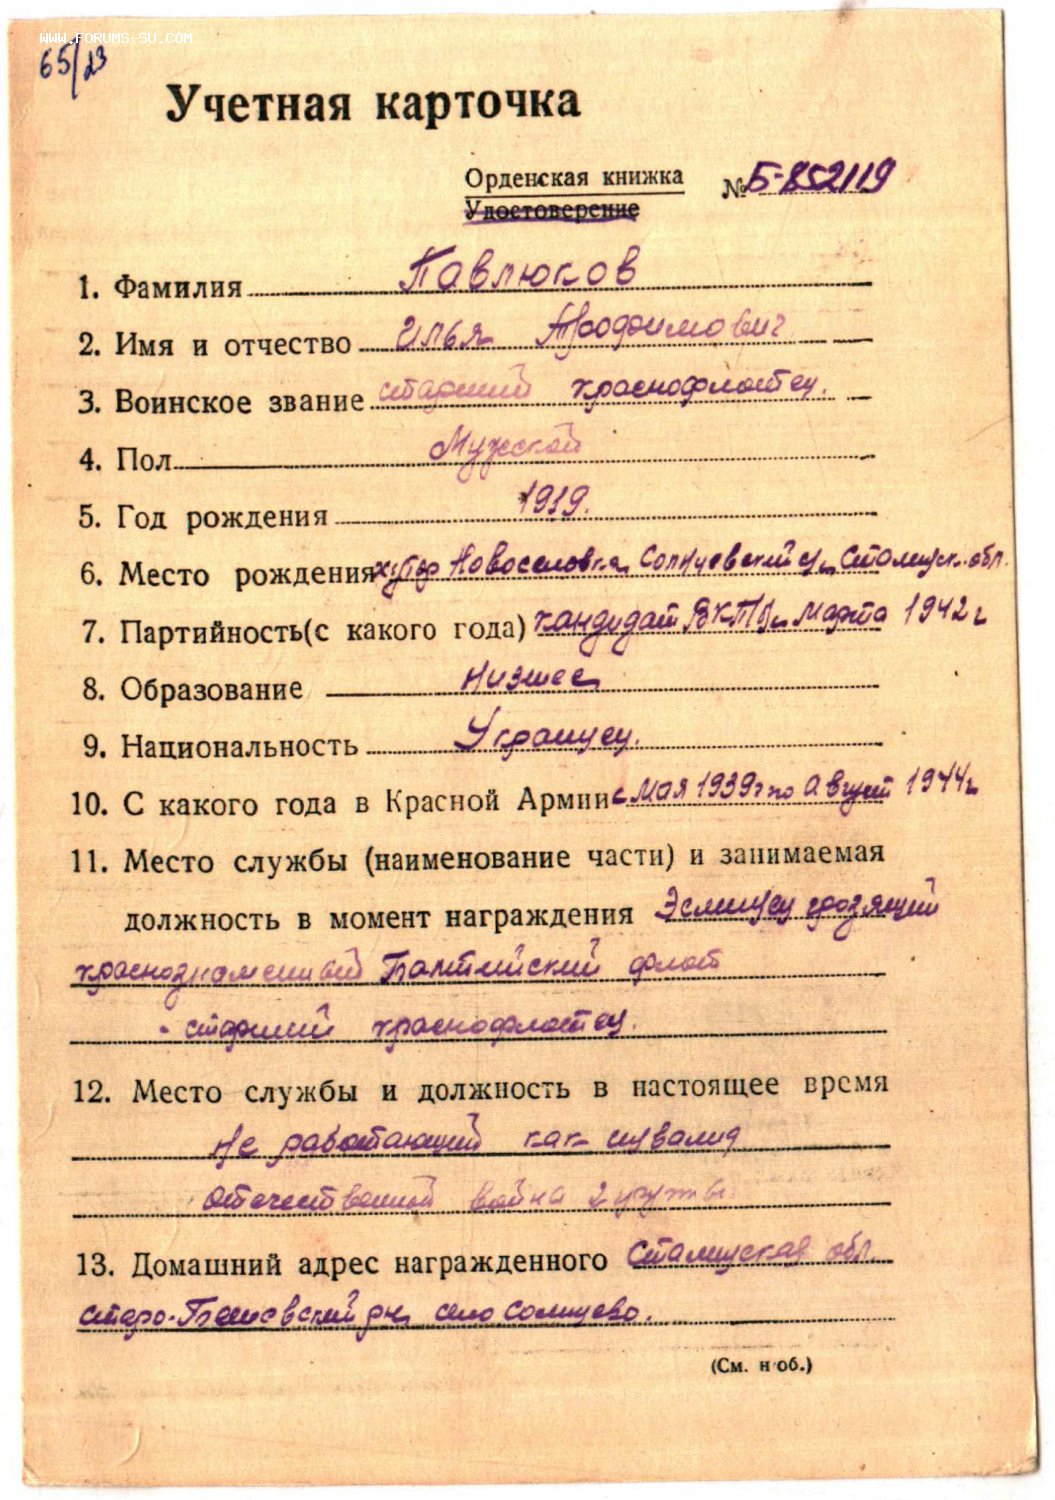 www.forums-su.com
65/23
Учетная карточка
Орденская книжка № Б-852119
Удостоверение
1. Фамилия Павлюков
2. Имя и отчество Илья Трофимович
3. Воинское звание старший краснофлотец.
4. Пол Мужской
5. Год рождения 1919.
6. Место рождения хутор Новоселовка, Солнцевский Сталинск. обл.
7. Партийность (с какого года) кандидат ВКП/б/ с марта 1942 г
8. Образование низшее
9. Национальность Украинец.
10. С какого года в Красной Армии с мая 1939 г по август 1944 г
11. Место службы (наименование части) и занимаемая
должность в момент награждения Эсминец грозящий
краснознаменный Балтийский флот
- старший краснофлотец.
12. Место службы и должность в настоящее время
не работающий как инвалид
отечественной война 2 группы
13. Домашний адрес награжденного Сталинская обл.
старо-Бешевский рн, село Солнцево.
(См. н об.)